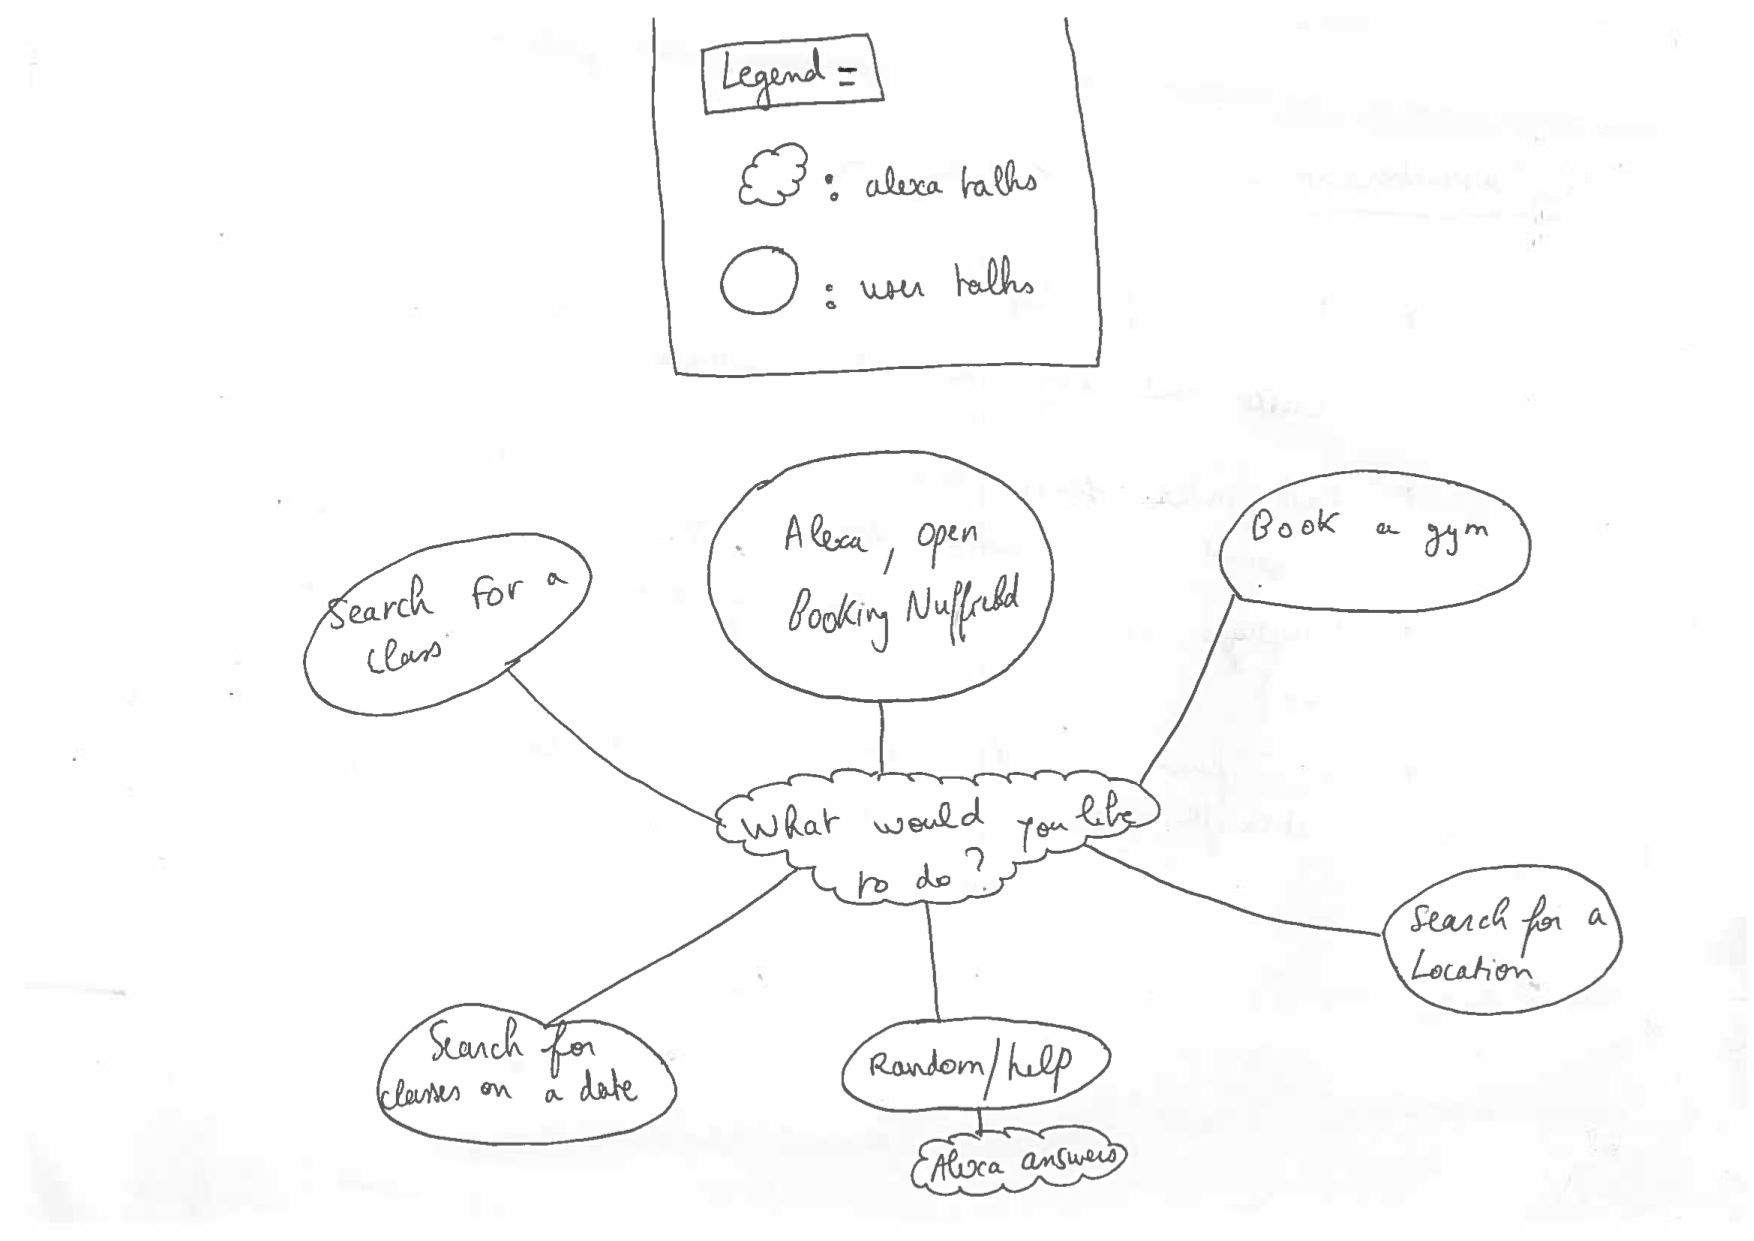 Legend =
: alexa talks
: user talks
Alexa, open
Booking Nuffield
Book a gym
Search for a
class
What would you like
to do?
Search for a
Location
Search for
classes on a date
Random/help
Alexa answers